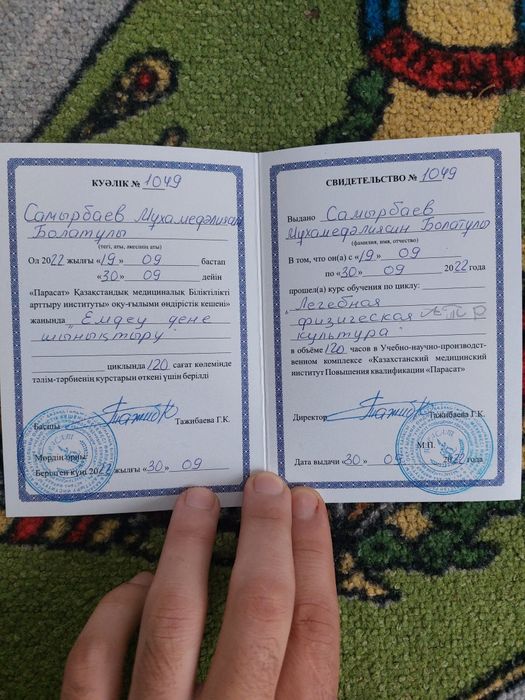 КУӘЛІК № 1049
Самырбаев Мұхамедәлиясин
Болатұлы
(тегі, аты, әкесінің аты)
Ол 2022 жылғы «19» 09 бастап
«30» 09 дейін
«Парасат» Қазақстандық медициналық Біліктілікті
арттыру институты» оқу-ғылыми өндірістік кешені»
жанында „Емдеу дене
шынықтыру"
циклында 120 сағат көлемінде
тәлім-тәрбиенің курстарын өткені үшін берілді
Басшы Тажибаева Г.К.
Мөрдің орны
Берілген күні 2022 жылғы «30» 09
СВИДЕТЕЛЬСТВО № 1049
Выдано Самырбаев
Мұхамедәлиясин Болатұлы
(фамилия, имя, отчество)
В том, что он(а) с «19» 09
по «30» 09 2022 года
прошел(а) курс обучения по циклу:
„Лечебная
физическая
культура"
в объёме 120 часов в Учебно-научно-производст-
венном комплексе «Казахстанский медицинский
институт Повышения квалификации «Парасат»
Директор Тажибаева Г.К.
М.П.
Дата выдачи «30» 09 2022 года